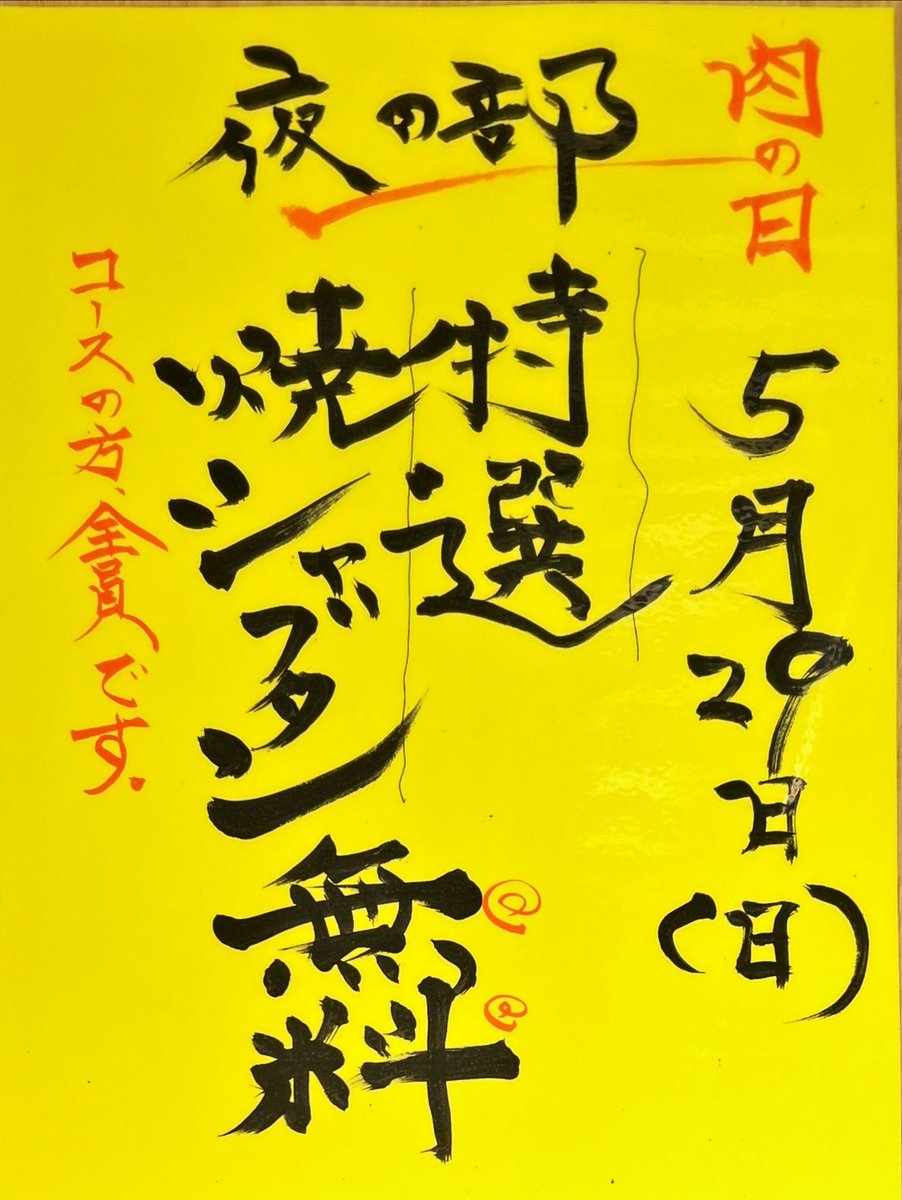 肉の日
5月29日(日)
夜の部
特選
焼シャブタン無料
コースの方、全員です。